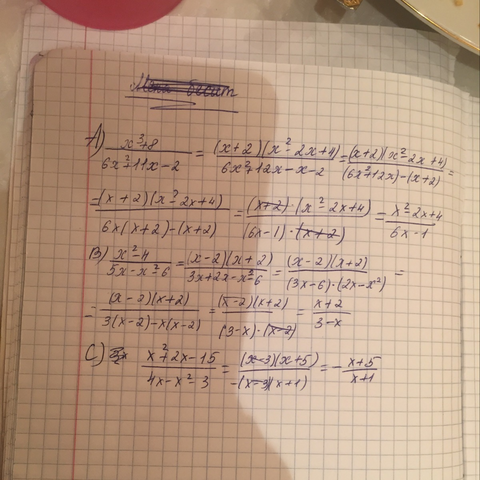 A) \frac{x^3+8}{6x^2+11x-2} = \frac{(x+2)(x^2-2x+4)}{6x^2+12x-x-2} = \frac{(x+2)(x^2-2x+4)}{(6x^2+12x)-(x+2)} =
= \frac{(x+2)(x^2-2x+4)}{6x(x+2)-(x+2)} = \frac{(x+2)·(x^2-2x+4)}{(6x-1)·(x+2)} = \frac{x^2-2x+4}{6x-1}
B) \frac{x^2-4}{5x-x^2-6} = \frac{(x-2)(x+2)}{3x+2x-x^2-6} = \frac{(x-2)(x+2)}{(3x-6)·(2x-x^2)} =
= \frac{(x-2)(x+2)}{3(x-2)-x(x-2)} = \frac{(x-2)(x+2)}{(3-x)·(x-2)} = \frac{x+2}{3-x}
C) \frac{x^2+2x-15}{4x-x^2-3} = \frac{(x-3)(x+5)}{-(x-3)(x+1)} = -\frac{x+5}{x+1}